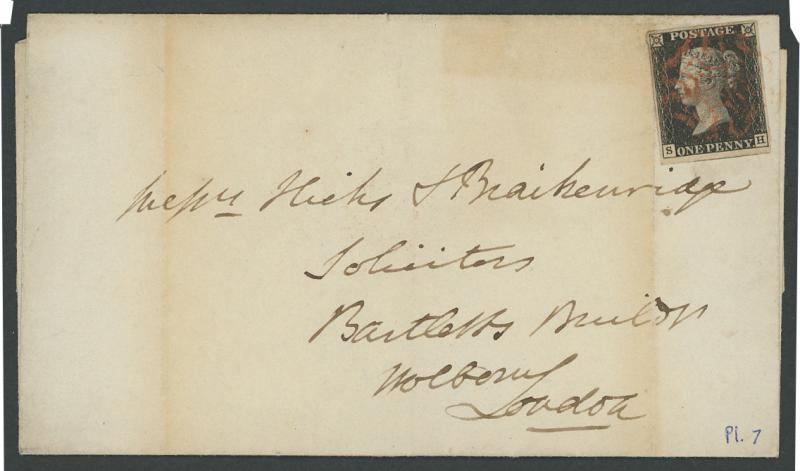 POSTAGE
S H
ONE PENNY
Messrs Hicks & Braikenridge
Solicitors
Bartletts Buildgs
Holborn
London
Pl. 7